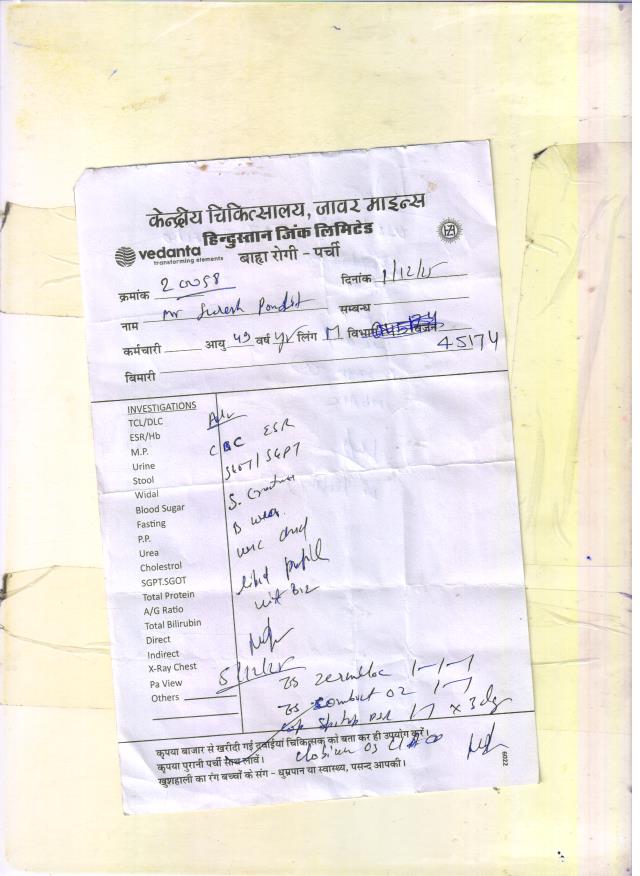 केन्द्रीय चिकित्सालय, जावर माइन्स
हिन्दुस्तान जिंक लिमिटेड
vedanta
transforming elements
बाह्य रोगी - पर्ची
क्रमांक 20058 दिनांक 1/12/25
नाम Mr Suresh सम्बन्ध
कर्मचारी आयु 49 वर्ष yr लिंग M विभाग
45174
बिमारी
INVESTIGATIONS
TCL/DLC Adv
ESR/Hb CBC ESR
M.P.
Urine SGOT/SGPT
Stool
Widal S.
Blood Sugar
Fasting B urea
P.P.
Urea uric acid
Cholestrol
SGPT.SGOT lipid profile
Total Protein vit B12
A/G Ratio
Total Bilirubin
Direct
Indirect
X-Ray Chest
Pa View 5/12/25 1-1-1
Others
1-1
1-1 x 3 dy
कृपया बाजार से खरीदी गई दवाईयां चिकित्सक को बता कर ही उपयोग करें।
कृपया पुरानी पर्ची साथ लावें।
खुशहाली का रंग बच्चों के संग - धुम्रपान या स्वास्थ्य, पसन्द आपकी।
6022